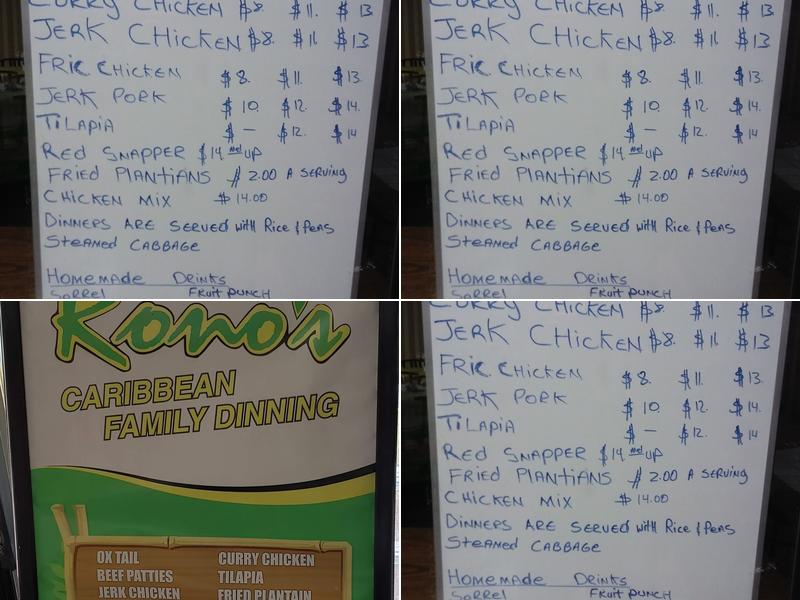 CURRY CHICKEN $8. $11. $13
JERK CHICKEN $8. $11 $13
FRIC CHICKEN $8. $11. $13.
JERK PORK $10. $12. $14.
TILAPIA $— $12. $14
RED SNAPPER $14 and UP
FRIED PLANTIANS $2.00 A SERVING
CHICKEN MIX $14.00
DINNERS ARE SERVED with Rice & PEAS
STEAMED CABBAGE
HOMEMADE DRINKS
SORREL FRUIT PUNCH
CURRY CHICKEN $8. $11. $13
JERK CHICKEN $8. $11 $13
FRIC CHICKEN $8. $11. $13.
JERK PORK $10. $12. $14.
TILAPIA $— $12. $14
RED SNAPPER $14 and UP
FRIED PLANTIANS $2.00 A SERVING
CHICKEN MIX $14.00
DINNERS ARE SERVED with Rice & PEAS
STEAMED CABBAGE
HOMEMADE DRINKS
SORREL FRUIT PUNCH
Rono's
CARIBBEAN
FAMILY DINNING
OX TAIL CURRY CHICKEN
BEEF PATTIES TILAPIA
JERK CHICKEN FRIED PLANTAIN
CURRY CHICKEN $8. $11. $13
JERK CHICKEN $8. $11 $13
FRIC CHICKEN $8. $11. $13.
JERK PORK $10. $12. $14.
TILAPIA $— $12. $14
RED SNAPPER $14 and UP
FRIED PLANTIANS $2.00 A SERVING
CHICKEN MIX $14.00
DINNERS ARE SERVED with Rice & PEAS
STEAMED CABBAGE
HOMEMADE DRINKS
SORREL FRUIT PUNCH